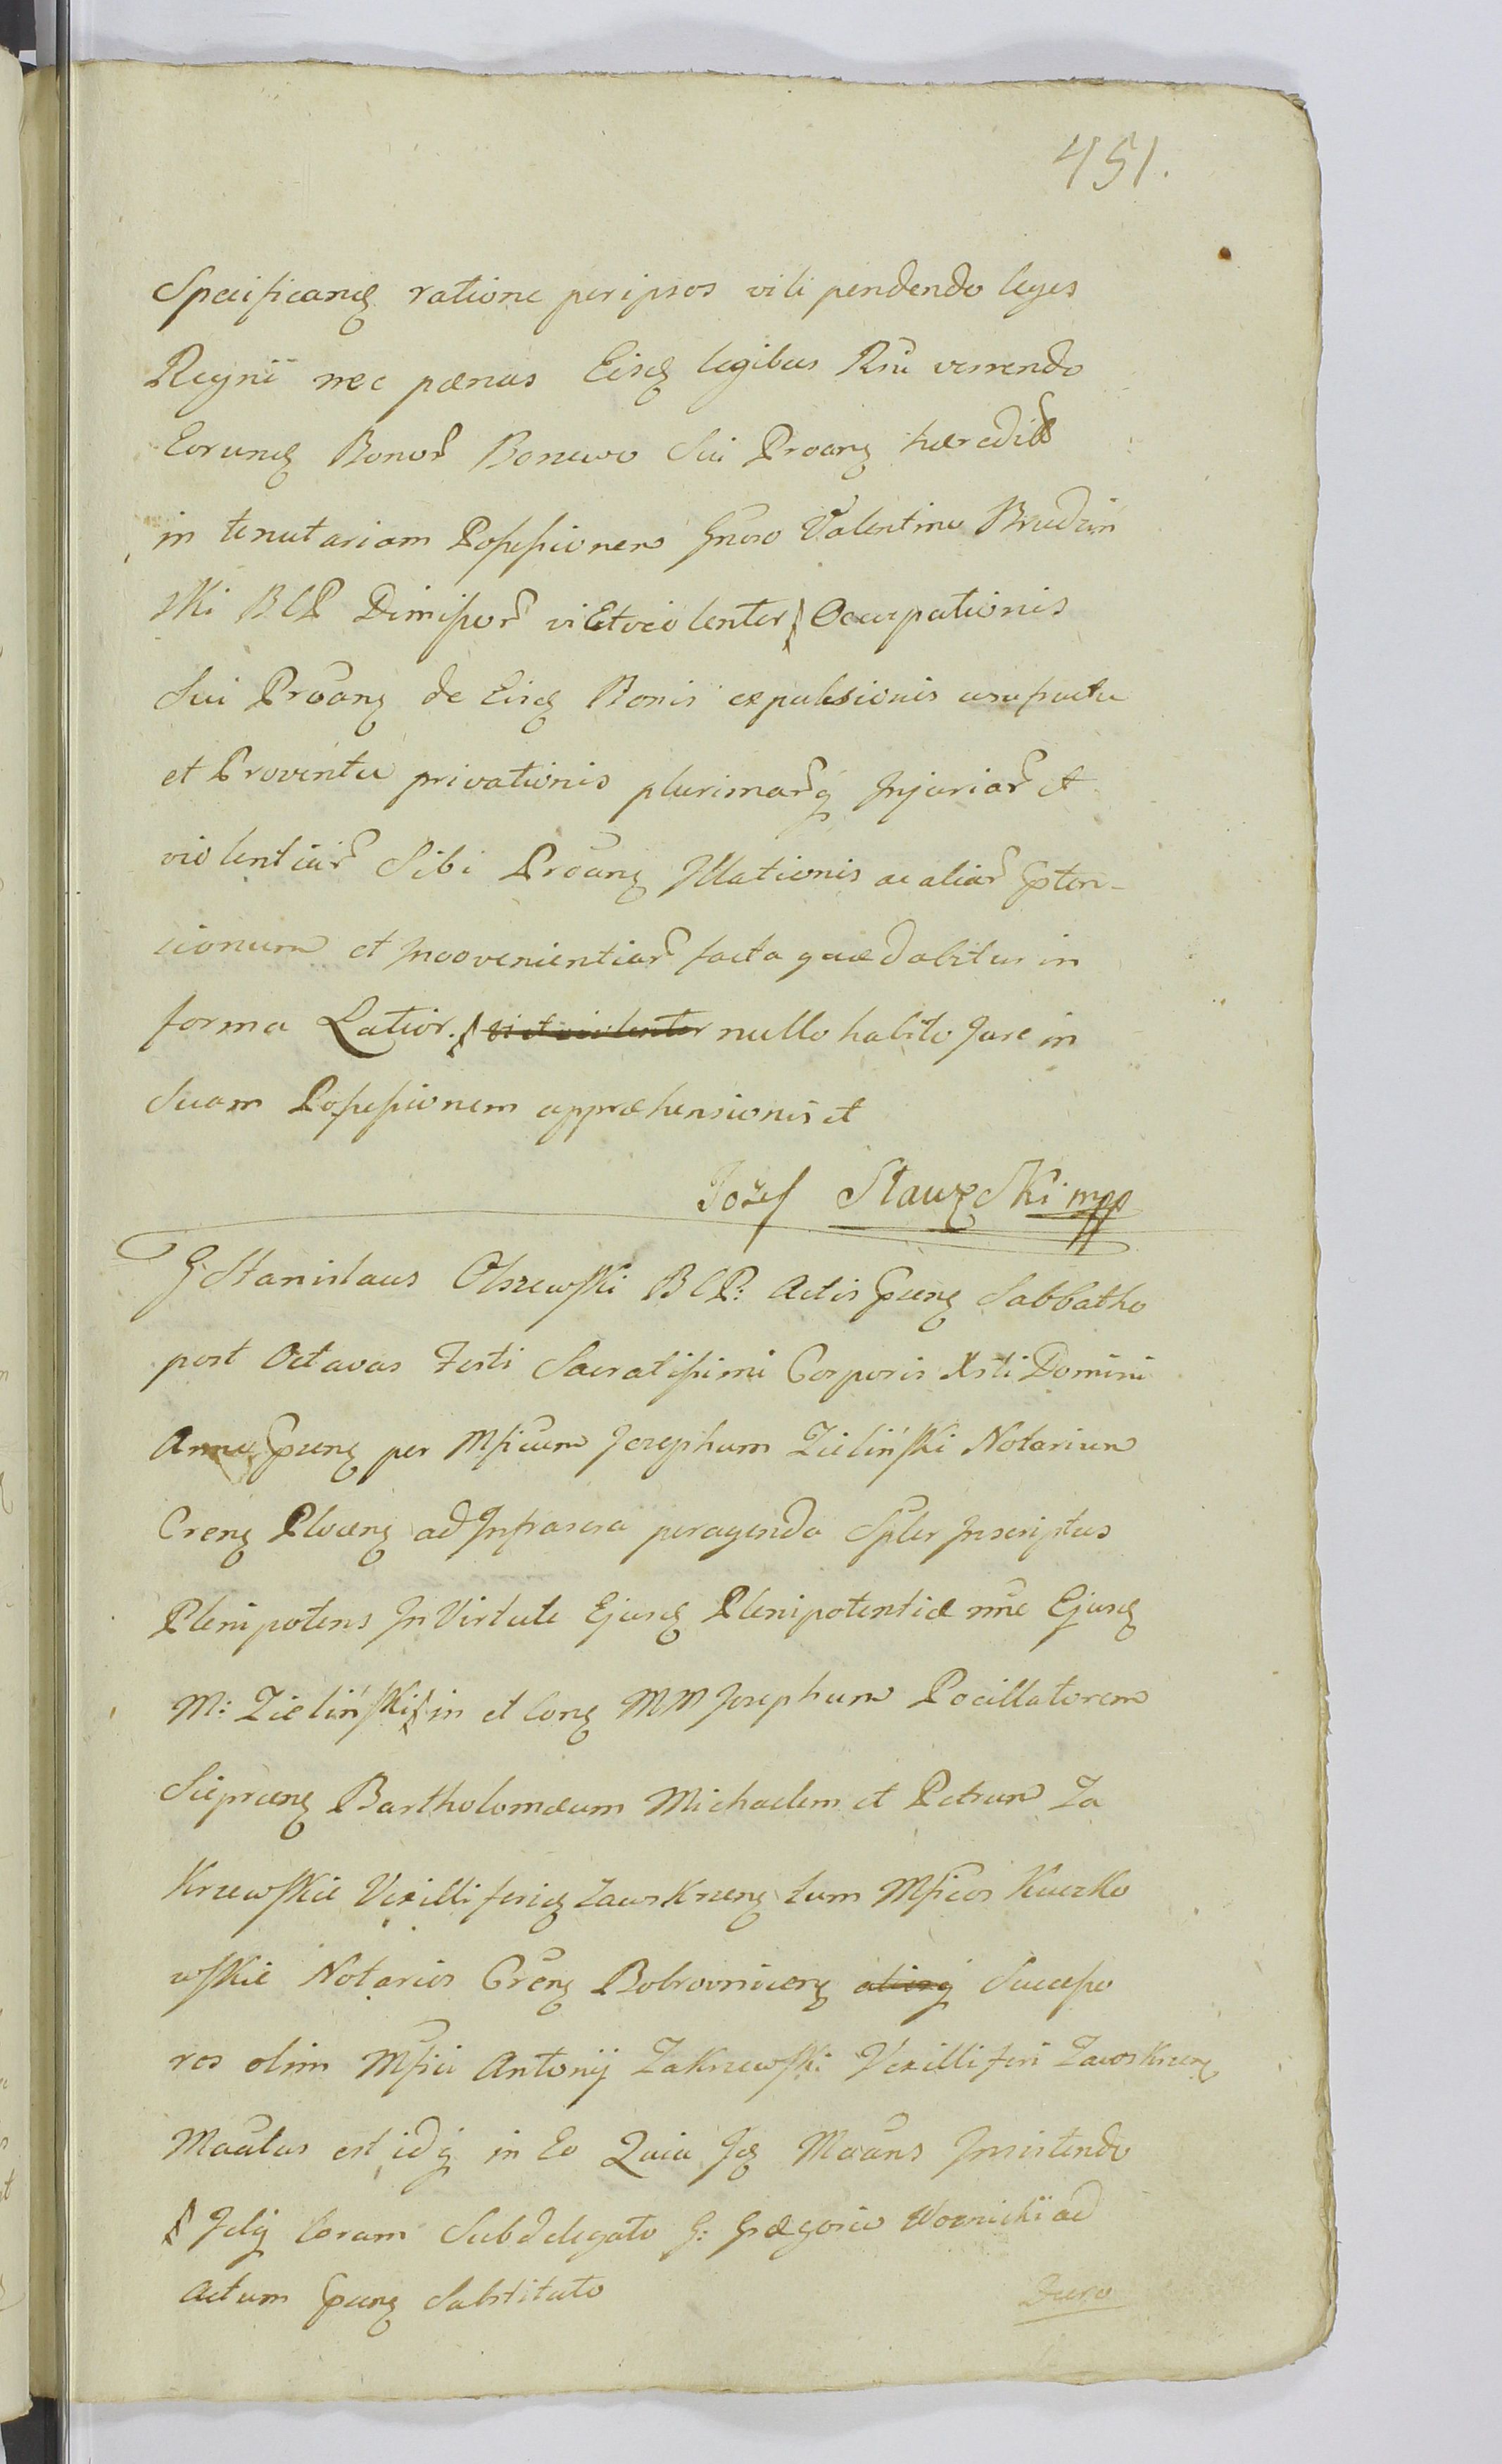 451.
Specificang ratione per ipsos vili pendendo leges
Regnii nec pænas Eisq legibus Rnu verrendo
Eorunq Bonor Bonewo Sui Proang hæredit
in tenutariam Possessionem Gnoso Valentino Brudzin
ski BCP Dimissor vi Et violenter Occupationis
Sui Proang de Eisq Bonis expulsionis usufructu
et Proventu privationis plurimarq Injuriar et
violentiar Sibi Proang Illationis ac aliar Prten-
cionum et Inconvenientiar facta quæ dabitur in
forma Latior. vi et violenter nullo habito Jure in
Suam Possessionem appræhensionis et
Jozef Stawskimpp
G Stanislaus Olszewski BCP: Actis Prng Sabbatho
post Octavas Festi Sacratissimi Corporis Xsti Domini
Anno Prng per Mficum Josephum Zieliński Notarium
Creng Ploceng ad Infrascra peragenda Spler Inscriptus
Plenipotens In Virtute Ejusq Plenipotentiæ nne Ejusq
M: Zieliński in et Cong MM Josephum Pocillatorem
Sieprceng Bartholomæum Michaelem et Petrum Za
Krzewskie Vexilliferiq Zawskrzeng tum Mficos Kuczko
wskie Notarios Creng Bobrovniceng aliosq Successo
res olim Mfici Antonij Zakrzewski Vexilliferi Zawskrzeng
Maultus est idq in Eo Quia Iq Maans Insistendo
Idq Coram Subdelegato G: Grægorio Woznicki ad
Actum Prng Substituto
Duro